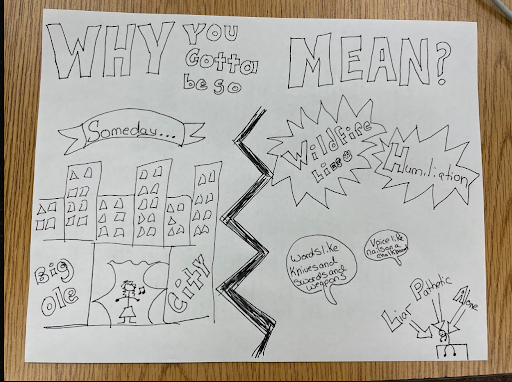 WHY YOU MEAN?
Gotta
be so
Someday...
WildFire
Lies
Humiliation
Big
Ole
City
Words like
Knives and
swords and
weapons
Voice like
nails on a
chalkboard
Liar
Pathetic
Alone